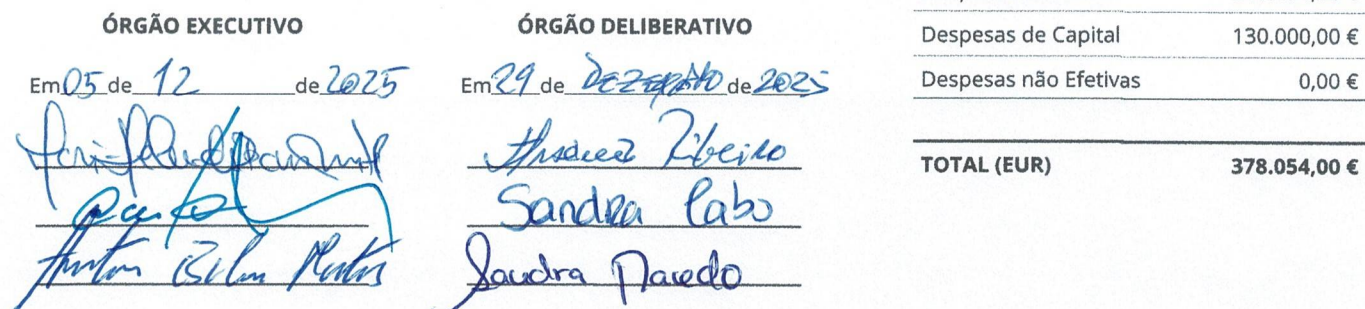 ÓRGÃO EXECUTIVO
Em 05 de 12 de 2025
ÓRGÃO DELIBERATIVO
Em 29 de DEZEMBRO de 2025
Ribeiro
Sandra Cabo
Sandra Macedo
Despesas de Capital 130.000,00 €
Despesas não Efetivas 0,00 €
TOTAL (EUR) 378.054,00 €